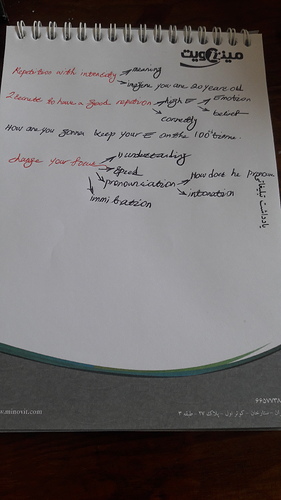 مین و یت
Repetition with intensity → meaning
→ imagine you are 20 years old
2 secrete to have a good repetition → high E → emotion
→ belief
→ correctly
How are you gonna keep your E on the 100th time.
change your focus → understanding
→ speed
→ pronounciation → How does he pronou
→ intonation
→ immitation
یادداشت تبلیغاتی
w.minovit.com